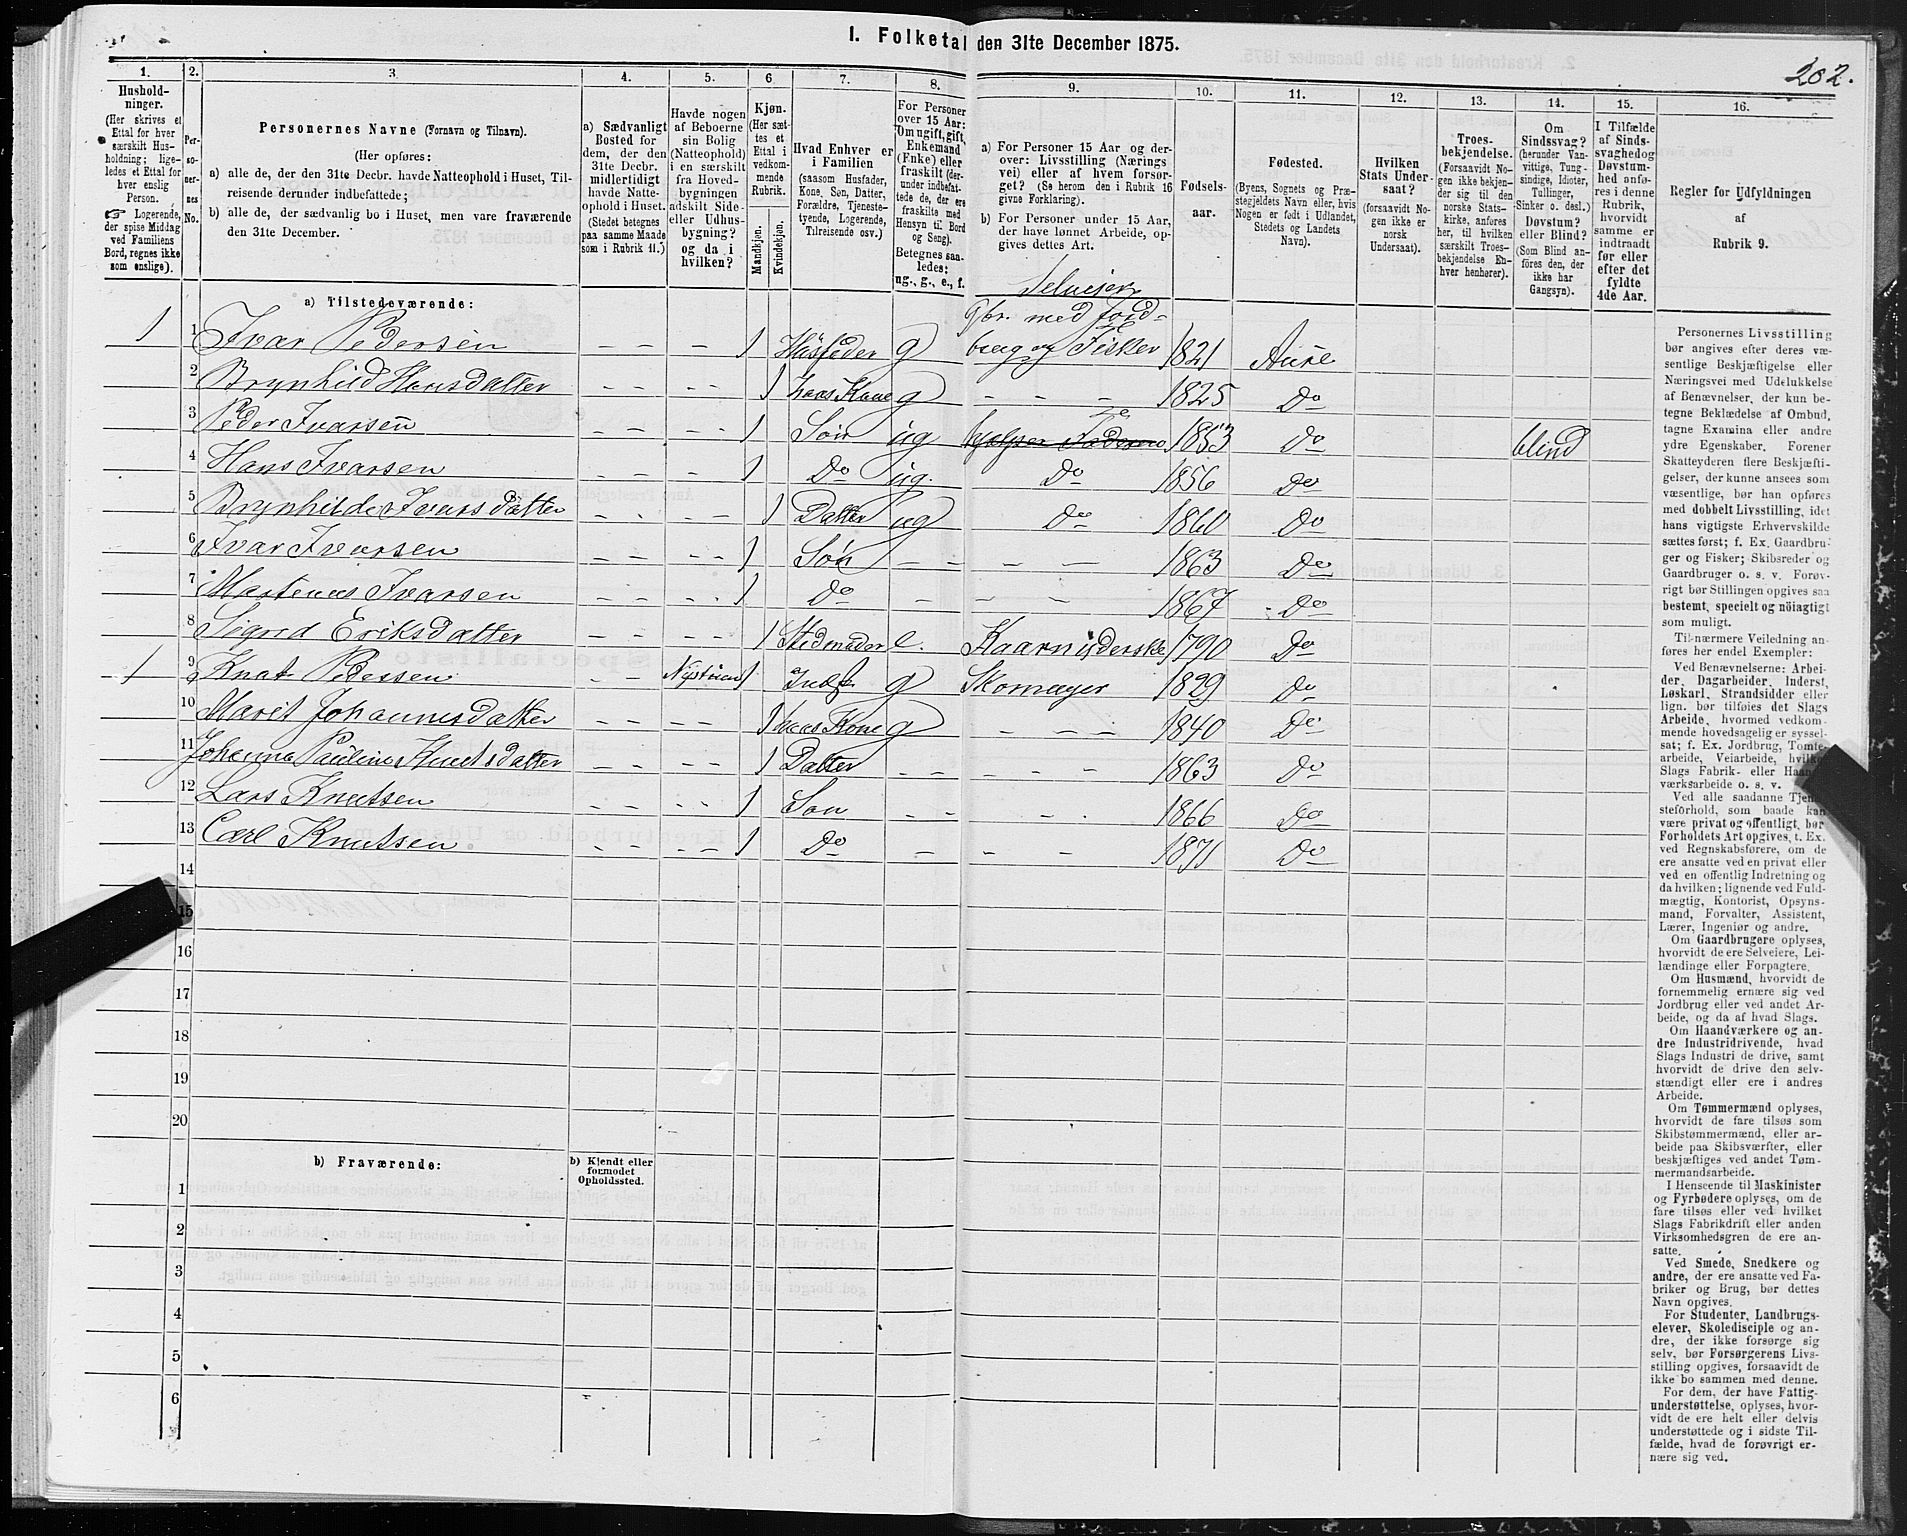 I. Folketal den 31te December 1875.
202.
1. 2. 3. 4. 5. 6. 7. 8. 9. 10. 11. 12. 13. 14. 15. 16.
Hushold-
ninger.
(Her skrives et
Ettal for hver
særskilt Hus-
holdning; lige-
ledes et Ettal for
hver enslig
Person.
☞ Logerende,
der spise Middag
ved Familiens
Bord, regnes ikke
som enslige).
Per-
so-
ner-
nes
No.
Personernes Navne (Fornavn og Tilnavn).
(Her opføres:
a) alle de, der den 31te Decbr. havde Natteophold i Huset, Til-
reisende derunder indbefattede;
b) alle de, der sædvanlig bo i Huset, men vare fraværende
den 31te December.
a) Sædvanligt
Bosted for
dem, der den
31te Decbr.
midlertidigt
havde Natte-
ophold i Huset.
(Stedet betegnes
paa samme Maade
som i Rubrik 11.)
Havde nogen
af Beboerne
sin Bolig
(Natteophold)
i en særskilt
fra Hoved-
bygningen
adskilt Side-
eller Udhus-
bygning?
og da i
hvilken?
Kjøn.
(Her sæt-
tes et
Ettal i
vedkom-
mende
Rubrik.
Mandkjøn.
Kvindekjøn.
Hvad Enhver er
i Familien
(saasom Husfader,
Kone, Søn, Datter,
Forældre, Tjeneste-
tyende, Logerende,
Tilreisende osv.)
For Personer
over 15 Aar:
Om ugift, gift,
Enkemand
(Enke) eller
fraskilt (der-
under indbefat-
tede de, der ere
fraskilte med
Hensyn til Bord
og Seng).
Betegnes saa-
ledes:
ug., g., e., f.
a) For Personer 15 Aar og der-
over: Livsstilling (Nærings
vei) eller af hvem forsør-
get? (Se herom den i Rubrik 16
givne Forklaring).
b) For Personer under 15 Aar,
der have lønnet Arbeide, op-
gives dettes Art.
Fødsels-
aar.
Fødested.
(Byens, Sognets og Præ-
stegjeldets Navn eller, hvis
Nogen er født i Udlandet,
Stedets og Landets
Navn).
Hvilken
Stats Under-
saat?
(forsaavidt No-
gen ikke er
norsk
Undersaat).
Troes-
bekjendelse.
(Forsaavidt No-
gen ikke bekjen-
der sig til den
norske Stats-
kirke, anføres
her, til hvilken
særskilt Troes-
bekjendelse En-
hver henhører).
Om
Sindssvag?
(herunder Van-
vittige, Tung-
sindige, Idioter,
Tullinger,
Sinker o. desl.)
Døvstum?
eller Blind?
(Som Blind an-
føres den, der
ikke har
Gangsyn).
I Tilfælde
af Sinds-
svaghed og
Døvstum-
hed anfø-
res i denne
Rubrik,
hvorvidt
samme er
indtraadt
før eller
efter det
fyldte
4de Aar.
Regler for Udfyldningen
af
Rubrik 9.
a) Tilstedeværende:
Selveier
Gbr. med Jord-
1 1 Ivar Pedersen – – – 1 Husfader g brug og Fisker 1821 Aure
2 Brynhild Hansdatter – – – – 1 hans Kone g – – – 1825 Do
3 Peder Ivarsen – – – – 1 Søn ug hjelper Faderen 1853 Do blind
4 Hans Ivarsen – – – 1 Do ug. Do 1856 Do
5 Brynhilde Ivarsdatter – – – – 1 Datter ug Do 1860 Do
6 Ivar Ivarsen – – – – 1 Søn – – – – 1863 Do
7 Martenus Ivarsen – – – – 1 Do – – – 1867 Do
8 Sigrid Eriksdatter – – – – 1 Stedmoder e. Kaarnyderske 1790 Do
1 9 Knut Pedersen – – Nystuen 1 Indf g Skomager 1829 Do
10 Marit Johannesdatter – – – – 1 hans Kone g – – – 1840 Do
11 Johanna Pauline Knutsdatter – – – – 1 Datter – – – – 1863 Do
12 Lars Knutsen – – – – 1 Søn – – – – 1866 Do
13 Carl Knutsen – – – – 1 Do – – – 1871 Do
14
15
16
17
18
19
20
b) Fraværende:
b) Kjendt eller
formodet
Opholdssted.
1
2
3
4
5
6
Personernes Livsstilling
bør angives efter deres væ-
sentlige Beskjæftigelse eller
Næringsvei med Udelukkelse
af Benævnelser, der kun be-
tegne Beklædelse af Ombud,
tagne Examina eller andre
ydre Egenskaber. Forener
Skatteyderen flere Beskjæfti-
gelser, der kunne ansees som
væsentlige, bør han opføres
med dobbelt Livsstilling, idet
hans vigtigste Erhvervskilde
sættes først; f. Ex. Gaardbru-
ger og Fisker; Skibsreder og
Gaardbruger o. s. v. Forøv-
rigt bør Stillingen opgives saa
bestemt, specielt og nöiagtigt
som muligt.
Til nærmere Veiledning an-
føres her endel Exempler:
Ved Benævnelserne: Arbei-
der, Dagarbeider, Inderst,
Løskarl, Strandsidder eller
lign. bør tilføies det Slags
Arbeide, hvormed vedkom-
mende hovedsagelig er syssel-
sat; f. Ex. Jordbrug, Tomte-
arbeide, Veiarbeide, hvilket
Slags Fabrik- eller Haand-
værksarbeide o. s. v.
Ved alle saadanne Tjene-
steforhold, som baade kan
være privat og offentligt, bør
Forholdets Art opgives, t. Ex.
ved Regnskabsførere, om de
ere ansatte ved en privat eller
ved en offentlig Indretning og
da hvilken; lignende ved Fuld-
mægtig, Kontorist, Opsyns-
mand, Forvalter, Assistent,
Lærer, Ingeniør og andre.
Om Gaardbrugere oplyses,
hvorvidt de ere Selveiere, Lei-
lændinge eller Forpagtere.
Om Husmænd, hvorvidt de
fornemmelig ernære sig ved
Jordbrug eller ved andet Ar-
beide, og da af hvad Slags.
Om Haandværkere og an-
dre Industridrivende, hvad
Slags Industri de drive, samt
hvorvidt de drive den selv-
stændigt eller ere i andres
Arbeide.
Om Tømmermænd oplyses,
hvorvidt de fare tilsøs som
Skibstømmermænd, eller ar-
beide paa Skibsværfter, eller
beskjæftiges ved andet Tøm-
mermandsarbeide.
I Henseende til Maskinister
og Fyrbødere oplyses, om de
fare tilsøs eller ved hvilket
Slags Fabrikdrift eller anden
Virksomhedsgren de ere an-
satte.
Ved Smede, Snedkere og
andre, der ere ansatte ved Fa-
briker og Brug, bør dettes
Navn opgives.
For Studenter, Landbrugs-
elever, Skoledisciple og an-
dre, der ikke forsørge sig
selv, bør Forsørgerens Livs-
stilling opgives, forsaavidt de
ikke bo sammen med denne.
For dem, der have Fattig-
understøttelse, oplyses, hvor-
vidt de ere helt eller delvis
understøttede og i sidste Til-
fælde, hvad de forøvrigt er-
nære sig ved.